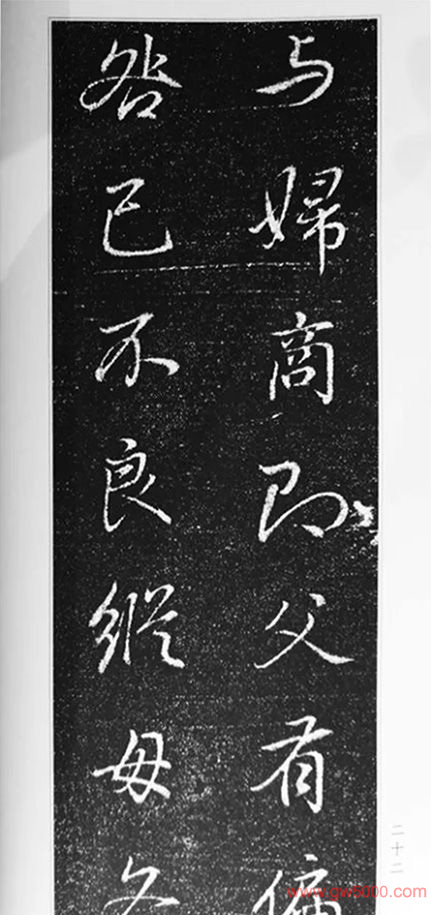 与婦商即父有偏
咎己不良縱母
二十二
www.gw5000.com